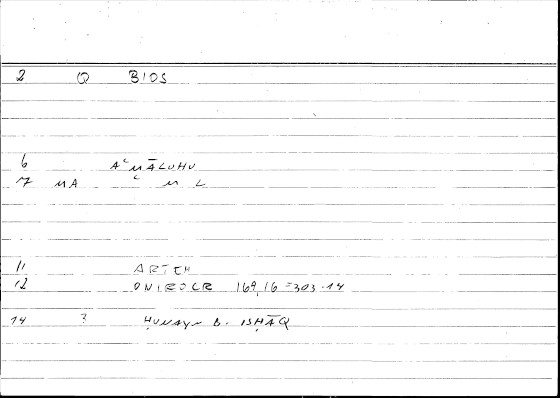 2 Q BIOS
6 AʿMĀLUHU
7 MA ʿ M L
11 ARTEM
12 ONIROCR 169,16 = 303.14
14 ? ḤUNAYN B. ISḤĀQ